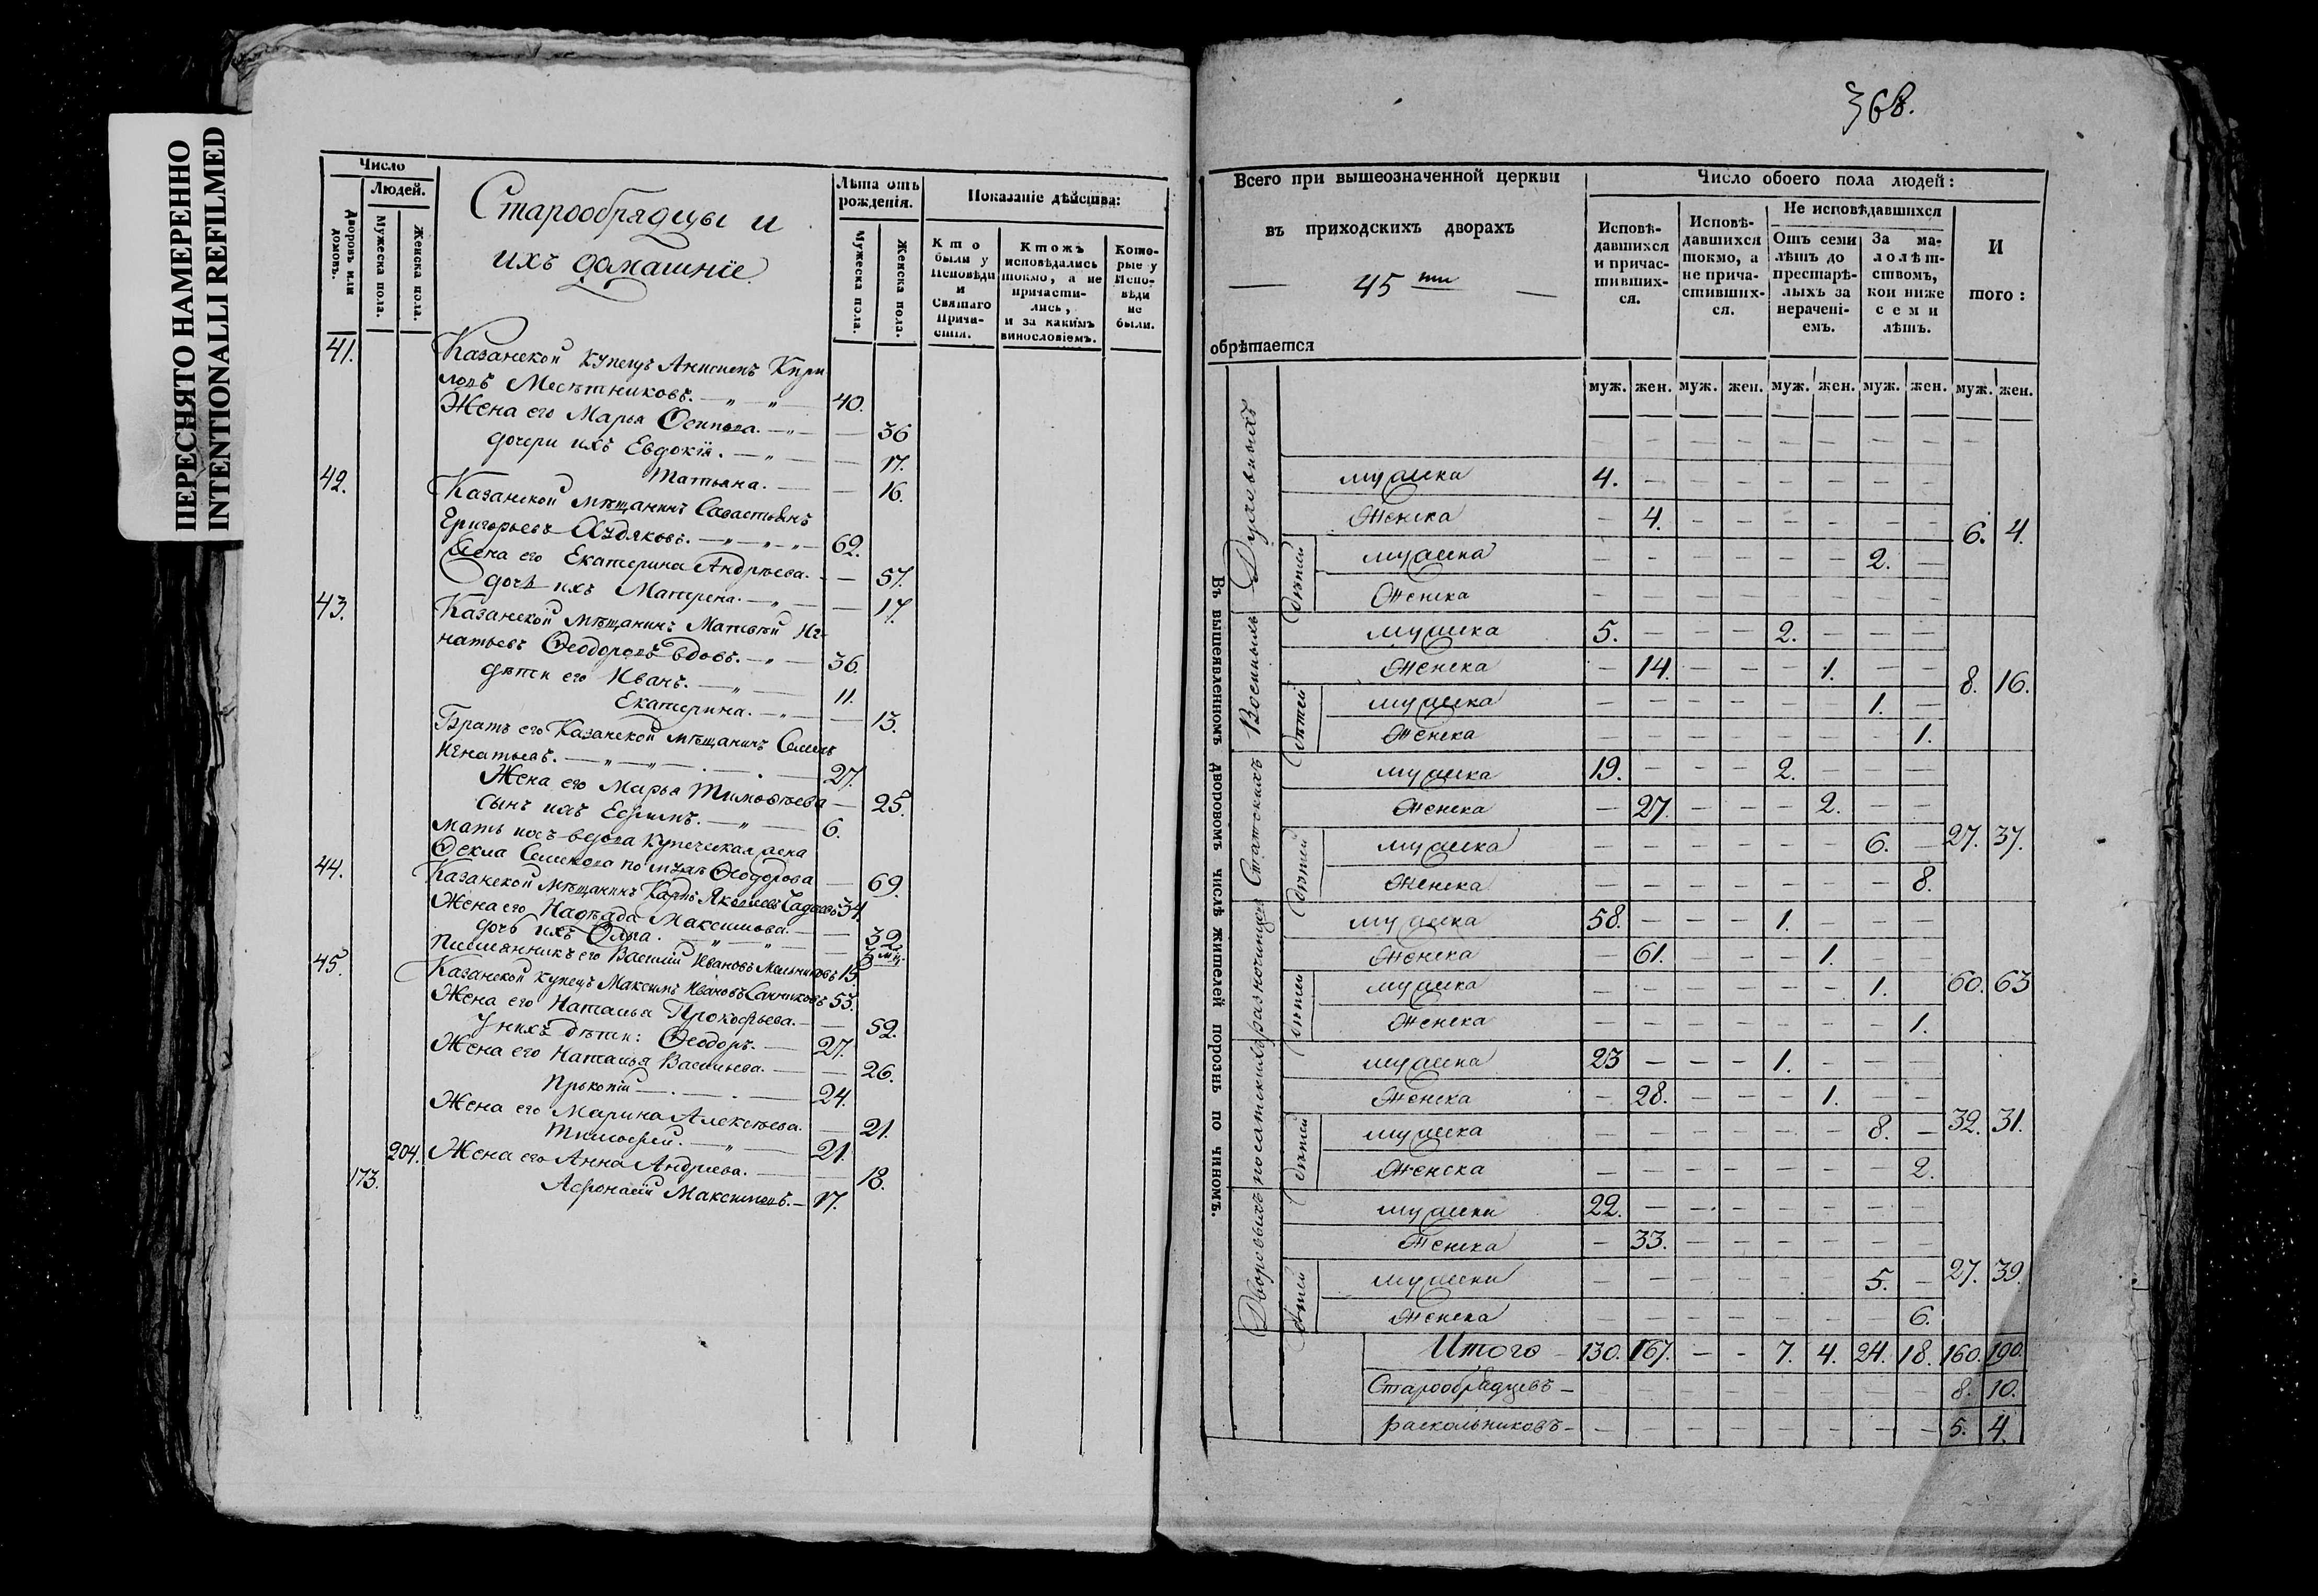 ПЕРЕСНЯТО НАМЕРЕННО
INTENTIONALLI REFILMED
Число
Людей.
Дворовъ или домовъ.
Мужеска пола.
Женска пола.
Старообрядцы и
ихъ домашніе
Лѣта отъ рожденія.
Мужеска пола.
Женска пола.
Показаніе дѣйства:
Кто были у Исповѣди и Святаго Причастія.
Ктожъ исповѣдались токмо, а не причастились, и за какимъ винословіемъ.
Которые у Исповѣди не были.
41. Казанской купецъ Анисимъ Кири
ловъ Месѣтниковъ. 40.
Жена его Марья Осипова. 36
дочери ихъ Евдокія. 17.
Татьяна. 16.
42. Казанской мѣщанинъ Савастьянъ
Григорьевъ Худяковъ. 62.
Жена его Екатерина Андрѣева. 57.
дочь ихъ Матрена. 17.
43. Казанской мѣщанинъ Матвѣй Иг-
натьевъ Ѳеодоровъ вдовъ. 36.
дѣти его Иванъ. 11.
Екатерина. 13.
Братъ его Казанской мѣщанинъ Семенъ
Игнатьевъ. 27.
Жена его Марья Тимоѳѣева 25.
сынъ ихъ Ефимъ. 6.
Мать ихъ вдова купеческая жена
Ѳекла Семенова по мужѣ Ѳеодорова 69.
44. Казанской мѣщанинъ Карпъ Яковлевъ 34.
Жена его Надѣжда Максимова. 32
дочь ихъ Ольга.
Племянникъ его Василій Ивановъ Мельниковъ 15.
45. Казанской купецъ Максимъ Ивановъ Санниковъ 53.
Жена его Наталья Прокофьева. 52.
У нихъ дѣти: Ѳеодоръ. 27.
Жена его Наталья Васильева. 26.
Прокопій 24.
Жена его Марина Алексѣева. 21.
Тимофей. 21.
204. Жена его Анна Андреева. 18.
173. Афонасій Максимовъ. 17.
368.
Всего при вышеозначенной церкви
въ приходскихъ дворахъ
45 ти
обрѣтается
Число обоего пола людей:
Исповѣдавшихся и причастившихся.
Исповѣдавшихся токмо, а не причастившихся.
Не исповѣдавшихся
Отъ семи лѣтъ до престарѣлыхъ за нераченіемъ.
За малолѣтствомъ, кои ниже семи лѣтъ.
И того:
муж. жен. муж. жен. муж. жен. муж. жен. муж. жен.
Въ вышеявленномъ дворовомъ числѣ жителей порознь по чиномъ.
Духовныхъ
мужеска 4. — — — — — — —
Женска — 4. — — — — — — 6. 4.
дѣтей
мужеска — — — — — — 2. —
Женска — — — — — — — —
Военныхъ
мужеска 5. — — — 2. — — —
Женска — 14. — — — 1. — — 8. 16.
дѣтей
мужеска — — — — — — 1. —
Женска — — — — — — — 1.
Статскихъ
мужеска 19. — — — 2. — — —
Женска — 27. — — — 2. — —
дѣтей
мужеска — — — — — — 6. — 27. 37.
Женска — — — — — — — 8.
разночинцевъ
мужеска 58. — — — 1. — — —
Женска — 61. — — — 1. — —
дѣтей
мужеска — — — — — — 1. — 60. 63
Женска — — — — — — — 1.
посатскихъ
мужеска 23 — — — 1. — — —
Женска — 28. — — — 1. — —
дѣтей
мужеска — — — — — — 8. — 32. 31.
Женска — — — — — — — 2.
Дворовыхъ
мужеска 22. — — — — — — —
Женска — 33. — — — — — —
дѣтей
мужеска — — — — — — 5. — 27. 39.
Женска — — — — — — — 6.
Итого 130. 167. — — 7. 4. 24. 18. 160. 190.
Старообрядцевъ — — — — — — — — — 8. 10.
раскольниковъ — — — — — — — — — 5. 4.